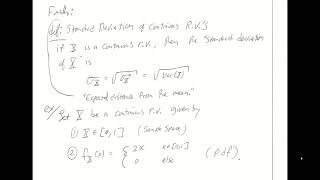 Finally:
def: Standard Deviation of Continuous R.V.'s
if X is a continuous r.v., then the "standard deviation
of X" is
σ_X = √σ_X² = √Var(X)
"Expected distance from the mean."
ex/ Let X be a continuous r.v. given by
① X ∈ [0,1] (Sample Space)
② f_X(x) = { 2x x∈[0,1] (pdf)
0 else